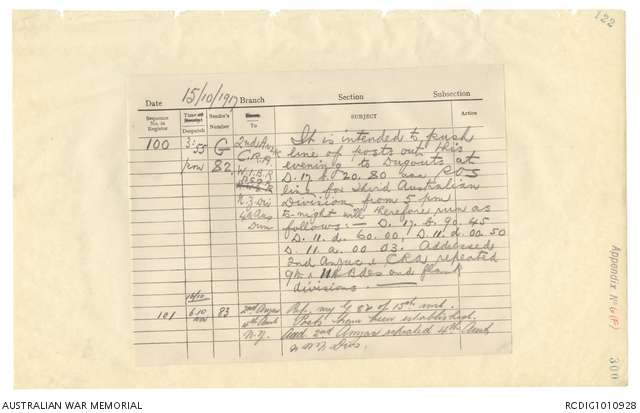 122
Date 15/10/1917 Branch Section Subsection
Sequence No. in Register Time of Despatch Sender's Number To SUBJECT Action
100 3.55 pm G 82 2nd Anzac C.R.A.
N.Z. Div
4th Aus Divn
It is intended to push
line of posts out this
evening to Dugouts at
D.17.b. 20.80 and SOS
line for Third Australian
Division from 5 pm
to-night will therefore run as
follows:- D.17.b.90.45
D.11.d.60.00, D.11.d.00.50
D.11.a.00.03. Addressed
2nd Anzac & CRA repeated
9th & 11th Bdes and flank
divisions.
101 15/10 6.10 83 2nd Anzac 4th Aust N.Z.
Ref. my G 82 of 15th inst.
Posts have been established.
Addd 2nd Anzac repeated 4th Aust
& NZ Divs.
Appendix No 6(F)
300
AUSTRALIAN WAR MEMORIAL RCDIG1010928